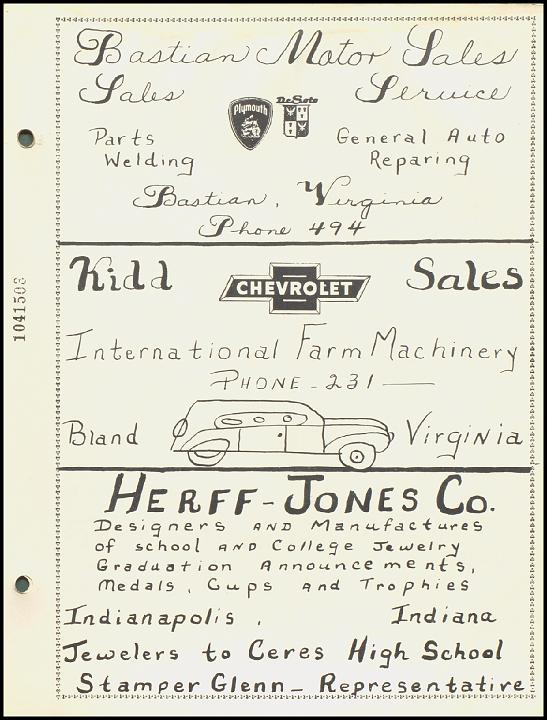 Bastian Motor Sales
Sales Service
Plymouth DeSoto
Parts General Auto
Welding Reparing
Bastian, Virginia
Phone 494
Kidd CHEVROLET Sales
International Farm Machinery
PHONE - 231
Bland Virginia
HERFF-JONES Co.
Designers AND Manufactures
of school AND College Jewelry
Graduation Announcements,
Medals, Cups and Trophies
Indianapolis, Indiana
Jewelers to Ceres High School
Stamper Glenn - Representative